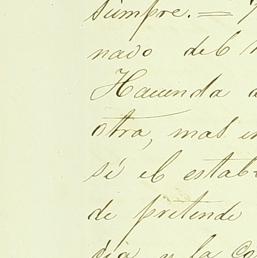 siempre. =
nado del
Hacienda
otra, mas
si el estab
de pretende
dia y la Co